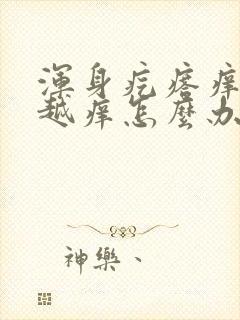 渾身疙瘩痒
越痒怎麼办
神樂、